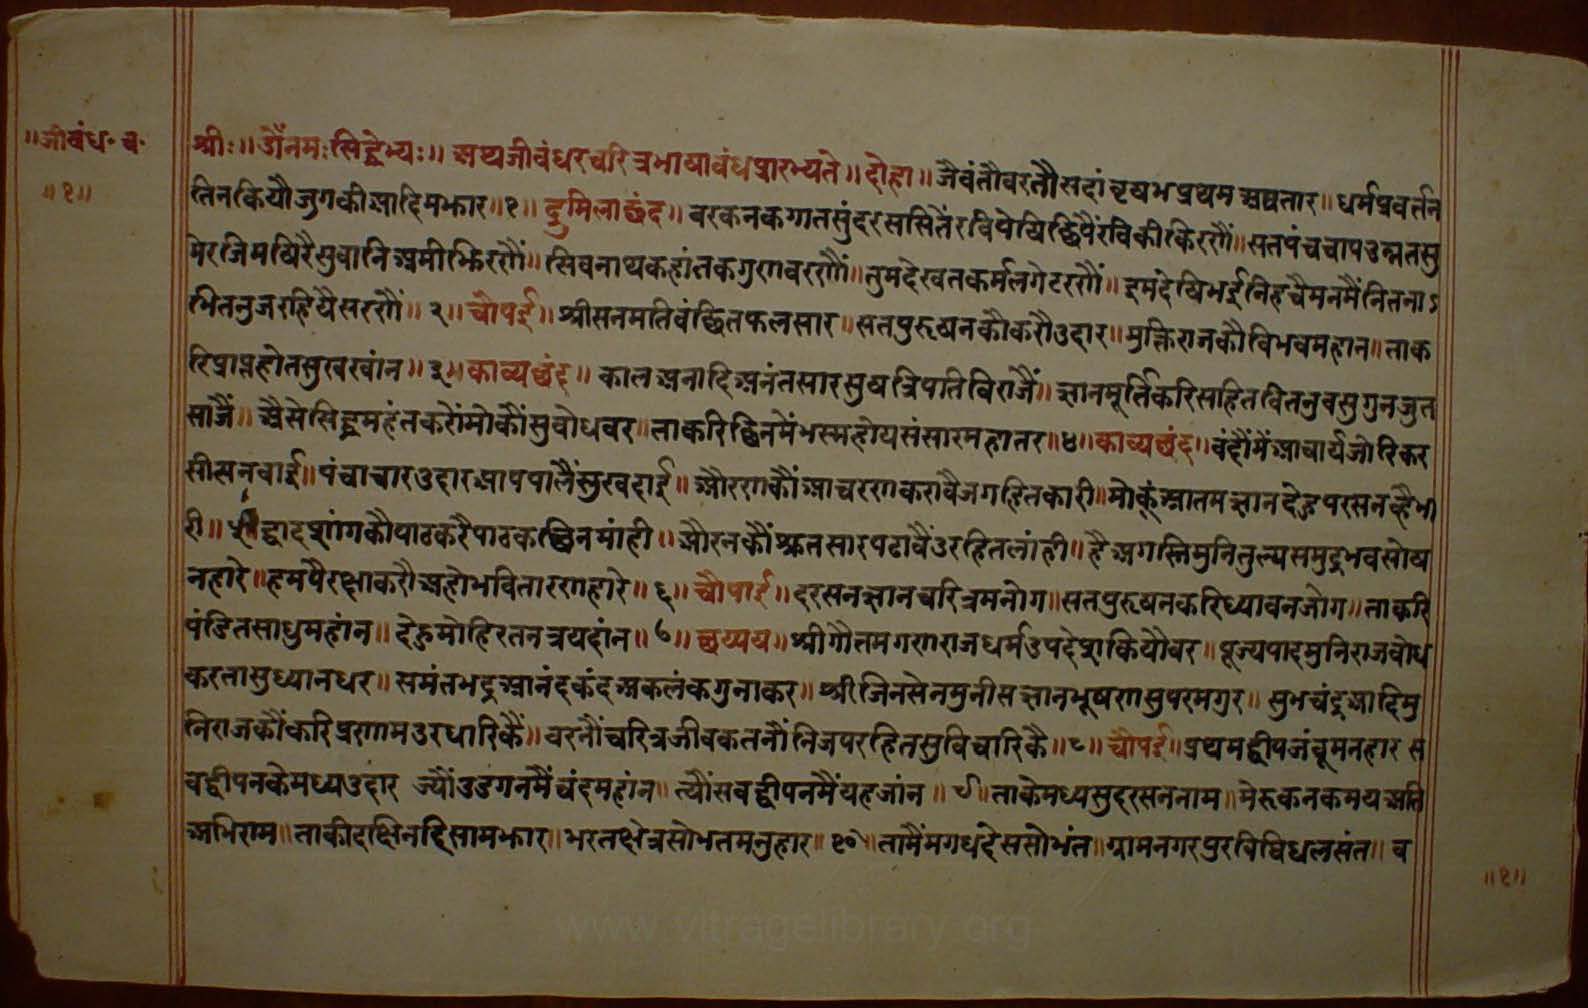 ॥जीबंध॰ च॰
॥१॥
श्रीः॥ॐनमःसिद्धेभ्यः॥ अथजीवंधरचरित्रभाषाबंधप्रारभ्यते॥दोहा॥जैवंतौवरतौसदांवृषभप्रथमअवतार॥धर्मप्रवर्तन
जिनकियौजुगकीआदिमझार॥१॥दुमिलाछंद॥वरकनकगातसुंदरससितैंरविपेषिछिपैंरविकीकिरणैं॥सतपंचचापउन्नतसु
मेरजिमषिरैसुवानिअमीझिरणैं॥सिवनाथकहांतकगुणवरणौं॥तुमदेखतकर्मलगेटरणैं॥इमदेषिभईनिहचैमनमैंनितना
भितनुजरहियैसरणैं॥२॥चौपई॥श्रीसनमतिवंछितफलसार॥सतपुरुषनकौकरौउदार॥मुक्तिराजकौविभवमहान॥ताक
रिप्राप्तहोतसुखखांन॥३॥काव्यछंद॥कालअनादिअनंतसारसुषत्रिपतिबिराजैं॥ज्ञानमूर्तिकरिसहितवितनुवसुगुनजुत
साजैं॥अैसेसिद्धमहंतकरोंमोकौंसुबोधवर॥ताकरिछिनमेंभस्महोयसंसारमहातर॥४॥काव्यछंद॥बंदौंमेंआचार्यजोरिकर
सीसनवाई॥पंचाचारउदारआपपालैंसुखदाई॥औरणकौंआचरणकरावैजगहितकारी॥मोकूंआतमज्ञानदेहुपरसनव्हैभा
री॥५॥द्वादशांगकौपाठकरैपाठकछिनमांही॥औरनकौंश्रुतसारपढावैंउरहितलांही॥हैअगस्तिमुनितुल्यसमुद्रभवसोष
नहारे॥हमपैरक्षाकरौअहोभवितारणहारे॥६॥चौपाई॥दरसनज्ञानचरित्रमनोग॥सतपुरुषनकरिध्यावनजोग॥ताकरि
पंडितसाधुमहांन॥देहुमोहिरतनत्रयदांन॥७॥छप्पय॥श्रीगौतमगणराजधर्मउपदेशकियौवर॥पूज्यपादमुनिराजबोध
करतासुध्यानधर॥समंतभद्रआनंदकंदअकलंकगुनाकर॥श्रीजिनसेनमुनीसज्ञानभूषणसुपरमगुर॥सुभचंद्रआदिमु
निराजकौंकरिप्रणामउरधारिकैं॥वरनौंचरित्रजीवकतनौंनिजपरहितसुविचारिकै॥८॥चौपई॥प्रथमद्वीपजंबूमनहार स
बद्वीपनकेमध्यउदार ज्यौंउडगनमैंचंदमहांन॥त्यौंसबद्वीपनमैंयहजांन॥९॥ताकेमध्यसुदरसननाम॥मेरुकनकमयअति
अभिराम॥ताकीदक्षिनदिसामझार॥भरतक्षेत्रसोभतमनुहार॥१०॥तामैंमगधदेससोभंत॥ग्रामनगरपुरविविधलसंत॥ब
॥१॥
www.vitragelibrary.org